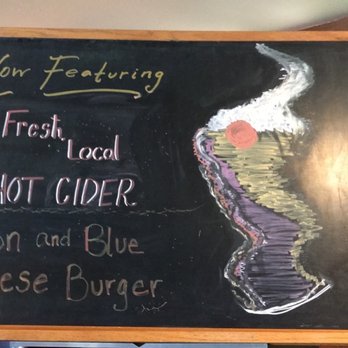 Now Featuring
Fresh
Local
HOT CIDER
on and Blue
eese Burger